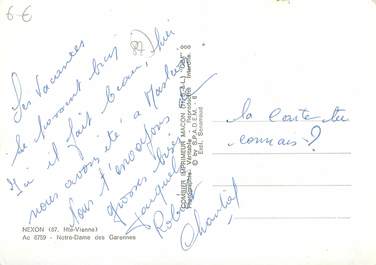 6 €
87
Les vacances
se passent bien
Ici il fait beau, hier
nous avons été, a
Nous t'envoyons
grosses bises
Jacqueline
Robert
Chantal
la carte tu
connais ?
NEXON (87. Hte-Vienne)
Ac 8759 - Notre-Dame des Garennes
COMBIER IMPRIMEUR MACON
Photographie Véritable - Reproduction Interdite
© by S.P.A.D.E.M.